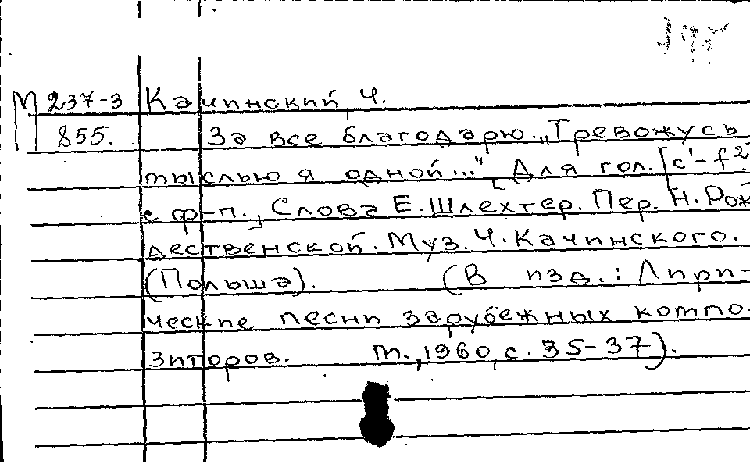 М 237-3 Качинский, Ч.
855. За все благодарю. „Тревожусь
мыслью я одной..." [Для гол. [c'-f²]
с ф-п.] Слова Е. Шлехтер. Пер. Н. Рож
дественской. Муз. Ч. Качинского.
(Польша). (В изд.: Лири-
ческие песни зарубежных компо-
зиторов. М., 1960, с. 35-37).